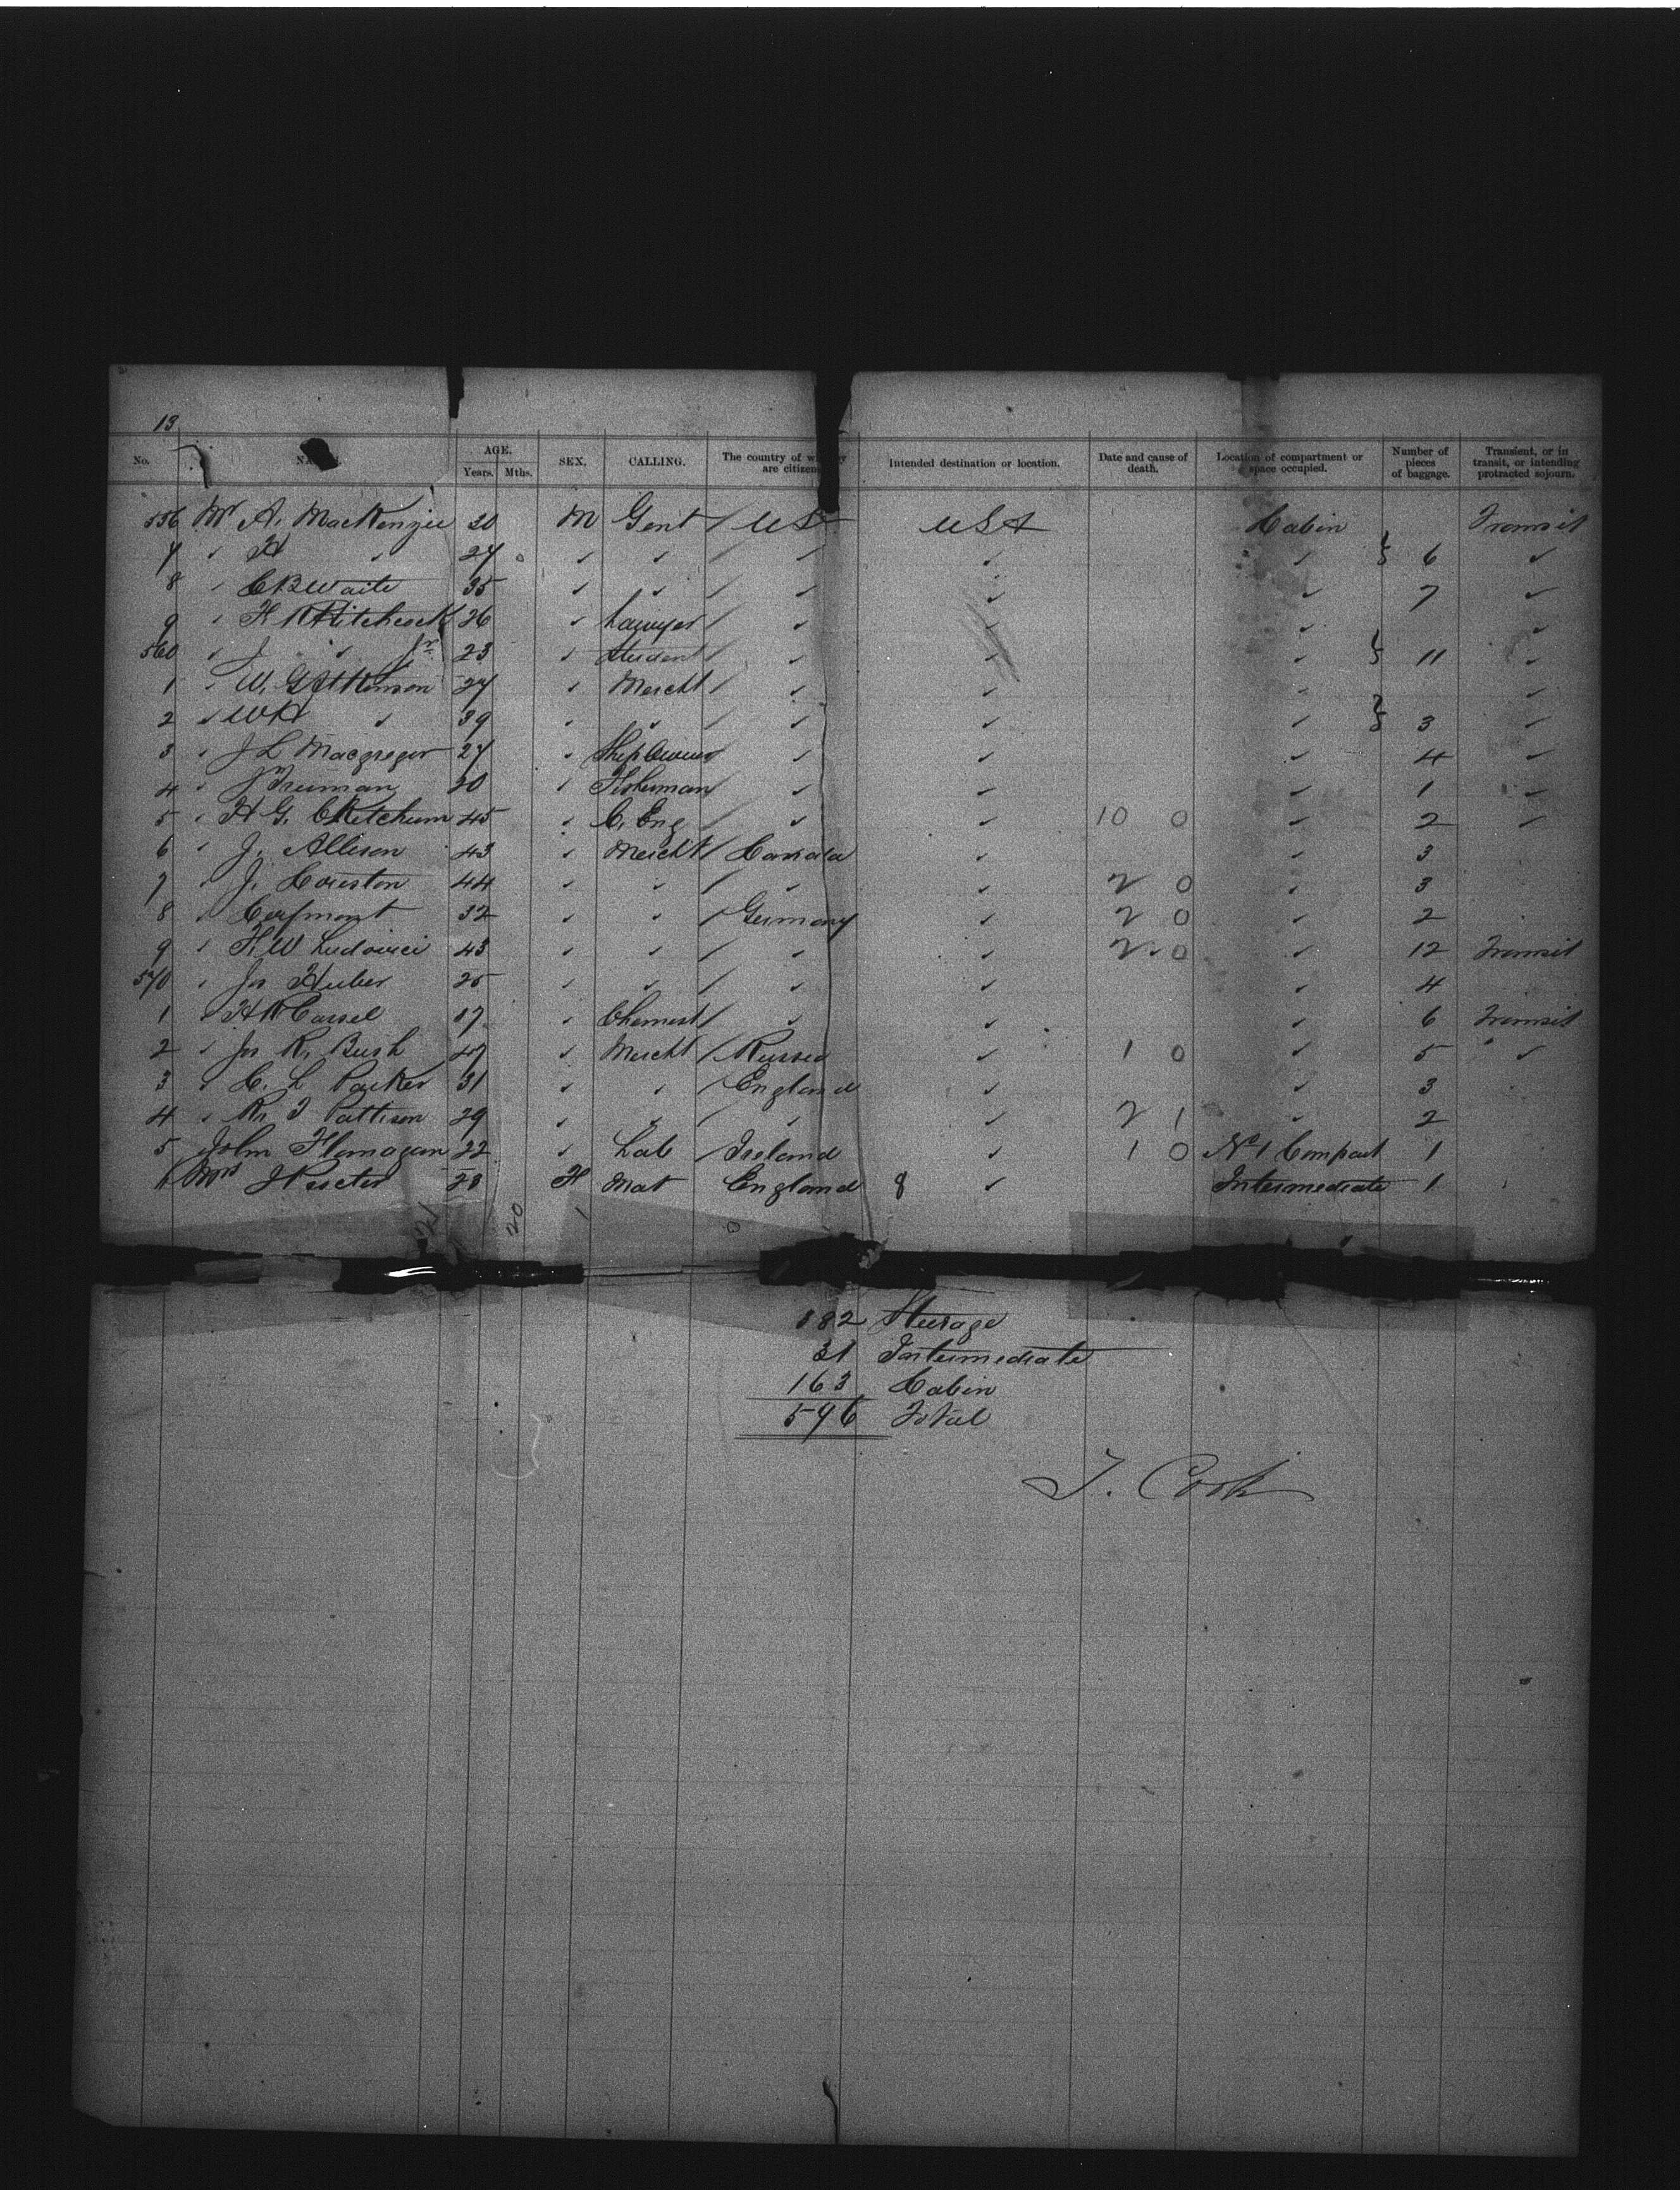 13
No. NA AGE. Years. Mths. SEX. CALLING. The country of w y are citizen Intended destination or location. Date and cause of death. Location of compartment or space occupied. Number of pieces of baggage. Transient, or in transit, or intending protracted sojourn.
556 Mr A. MacKenzie 30 M Gent / US USA Cabin Transit
7 " H " 27 " " / " " " } 6 "
8 " C B Waite 35 " " / " " " 7 "
9 " H R Hitchcock 26 " Lawyer / " " " "
560 " J " Jr 23 " Student / " " " } 11 "
1 " W. G Atkinson 27 " Mercht / " " " "
2 " W H " 39 " " / " " " } 3 "
3 " J L Macgregor 27 " Ship Owner / " " " 4 "
4 " J Truman 20 " Fisherman / " " " 1 "
5 " H G. C Ketchum 45 " C. Eng / " " 10 0 " 2 "
6 " J. Allison 43 " Mercht / Canada " " 3
7 " J. Couston 44 " " / " " 2 0 " 3
8 " 32 " " / Germany " 2 0 " 2
9 " H. W Ludovici 43 " " / " " 2 0 " 12 Transit
570 " Jos Huber 25 " " / " " " 4
1 " H R Cassel 17 " Chemist / " " " 6 Transit
2 " Jos R. Bush 47 " Mercht / Russia " 1 0 " 5 "
3 " C. L Parker 31 " " / England " " 3
4 " R. T Pattison 29 " " / " " 2 1 " 2
5 John Flanagan 22 " Lab / Ireland " 1 0 No 1 Compart 1
6 Mrs 28 F Mat England 8 " Intermediate 1
20 1 0
182 Steerage
31 Intermediate
163 Cabin
576 Total
T. Cook